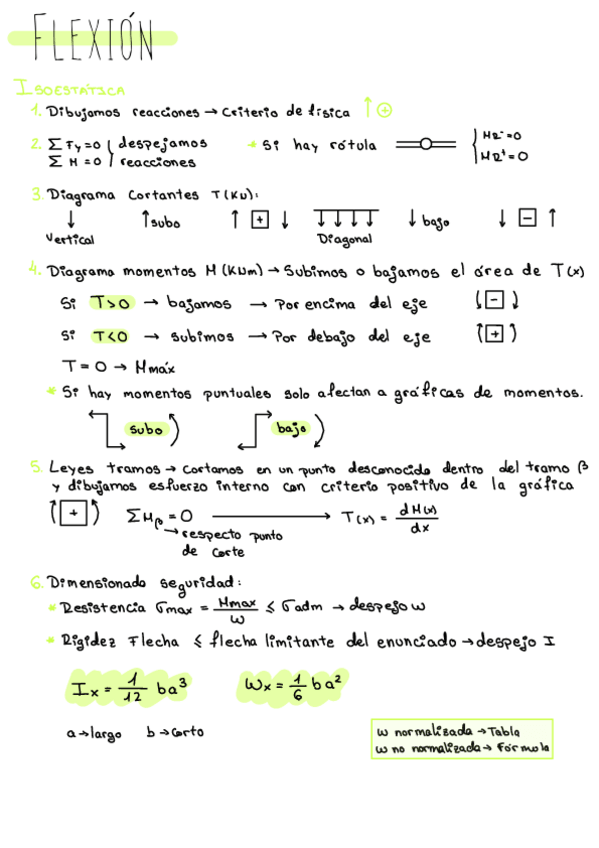 FLEXIÓN
ISOESTÁTICA
1. Dibujamos reacciones → Criterio de física ↑ ⊕
2. Σ Fy = 0 despejamos * Si hay rótula MR⁻ = 0
Σ M = 0 reacciones MR⁺ = 0
3. Diagrama cortantes T(KN):
↓ ↑ subo ↑ + ↓ ↓↓↓↓ ↓ bajo ↓ − ↑
Vertical Diagonal
4. Diagrama momentos M(KNm) → Subimos o bajamos el área de T(x)
Si T>0 → bajamos → Por encima del eje −
Si T<0 → subimos → Por debajo del eje +
T = 0 → Mmáx
* Si hay momentos puntuales solo afectan a gráficas de momentos.
subo bajo
5. Leyes tramos → Cortamos en un punto desconocido dentro del tramo β
y dibujamos esfuerzo interno con criterio positivo de la gráfica
+ ΣMβ = 0 → T(x) = dM(x)/dx
→ respecto punto
de corte
6. Dimensionado seguridad:
* Resistencia σmax = Mmax/W ≤ σadm → despejo W
* Rigidez Flecha ≤ flecha limitante del enunciado → despejo I
Ix = 1/12 ba³ Wx = 1/6 ba²
a → largo b → corto
W normalizada → Tabla
W no normalizada → Fórmula